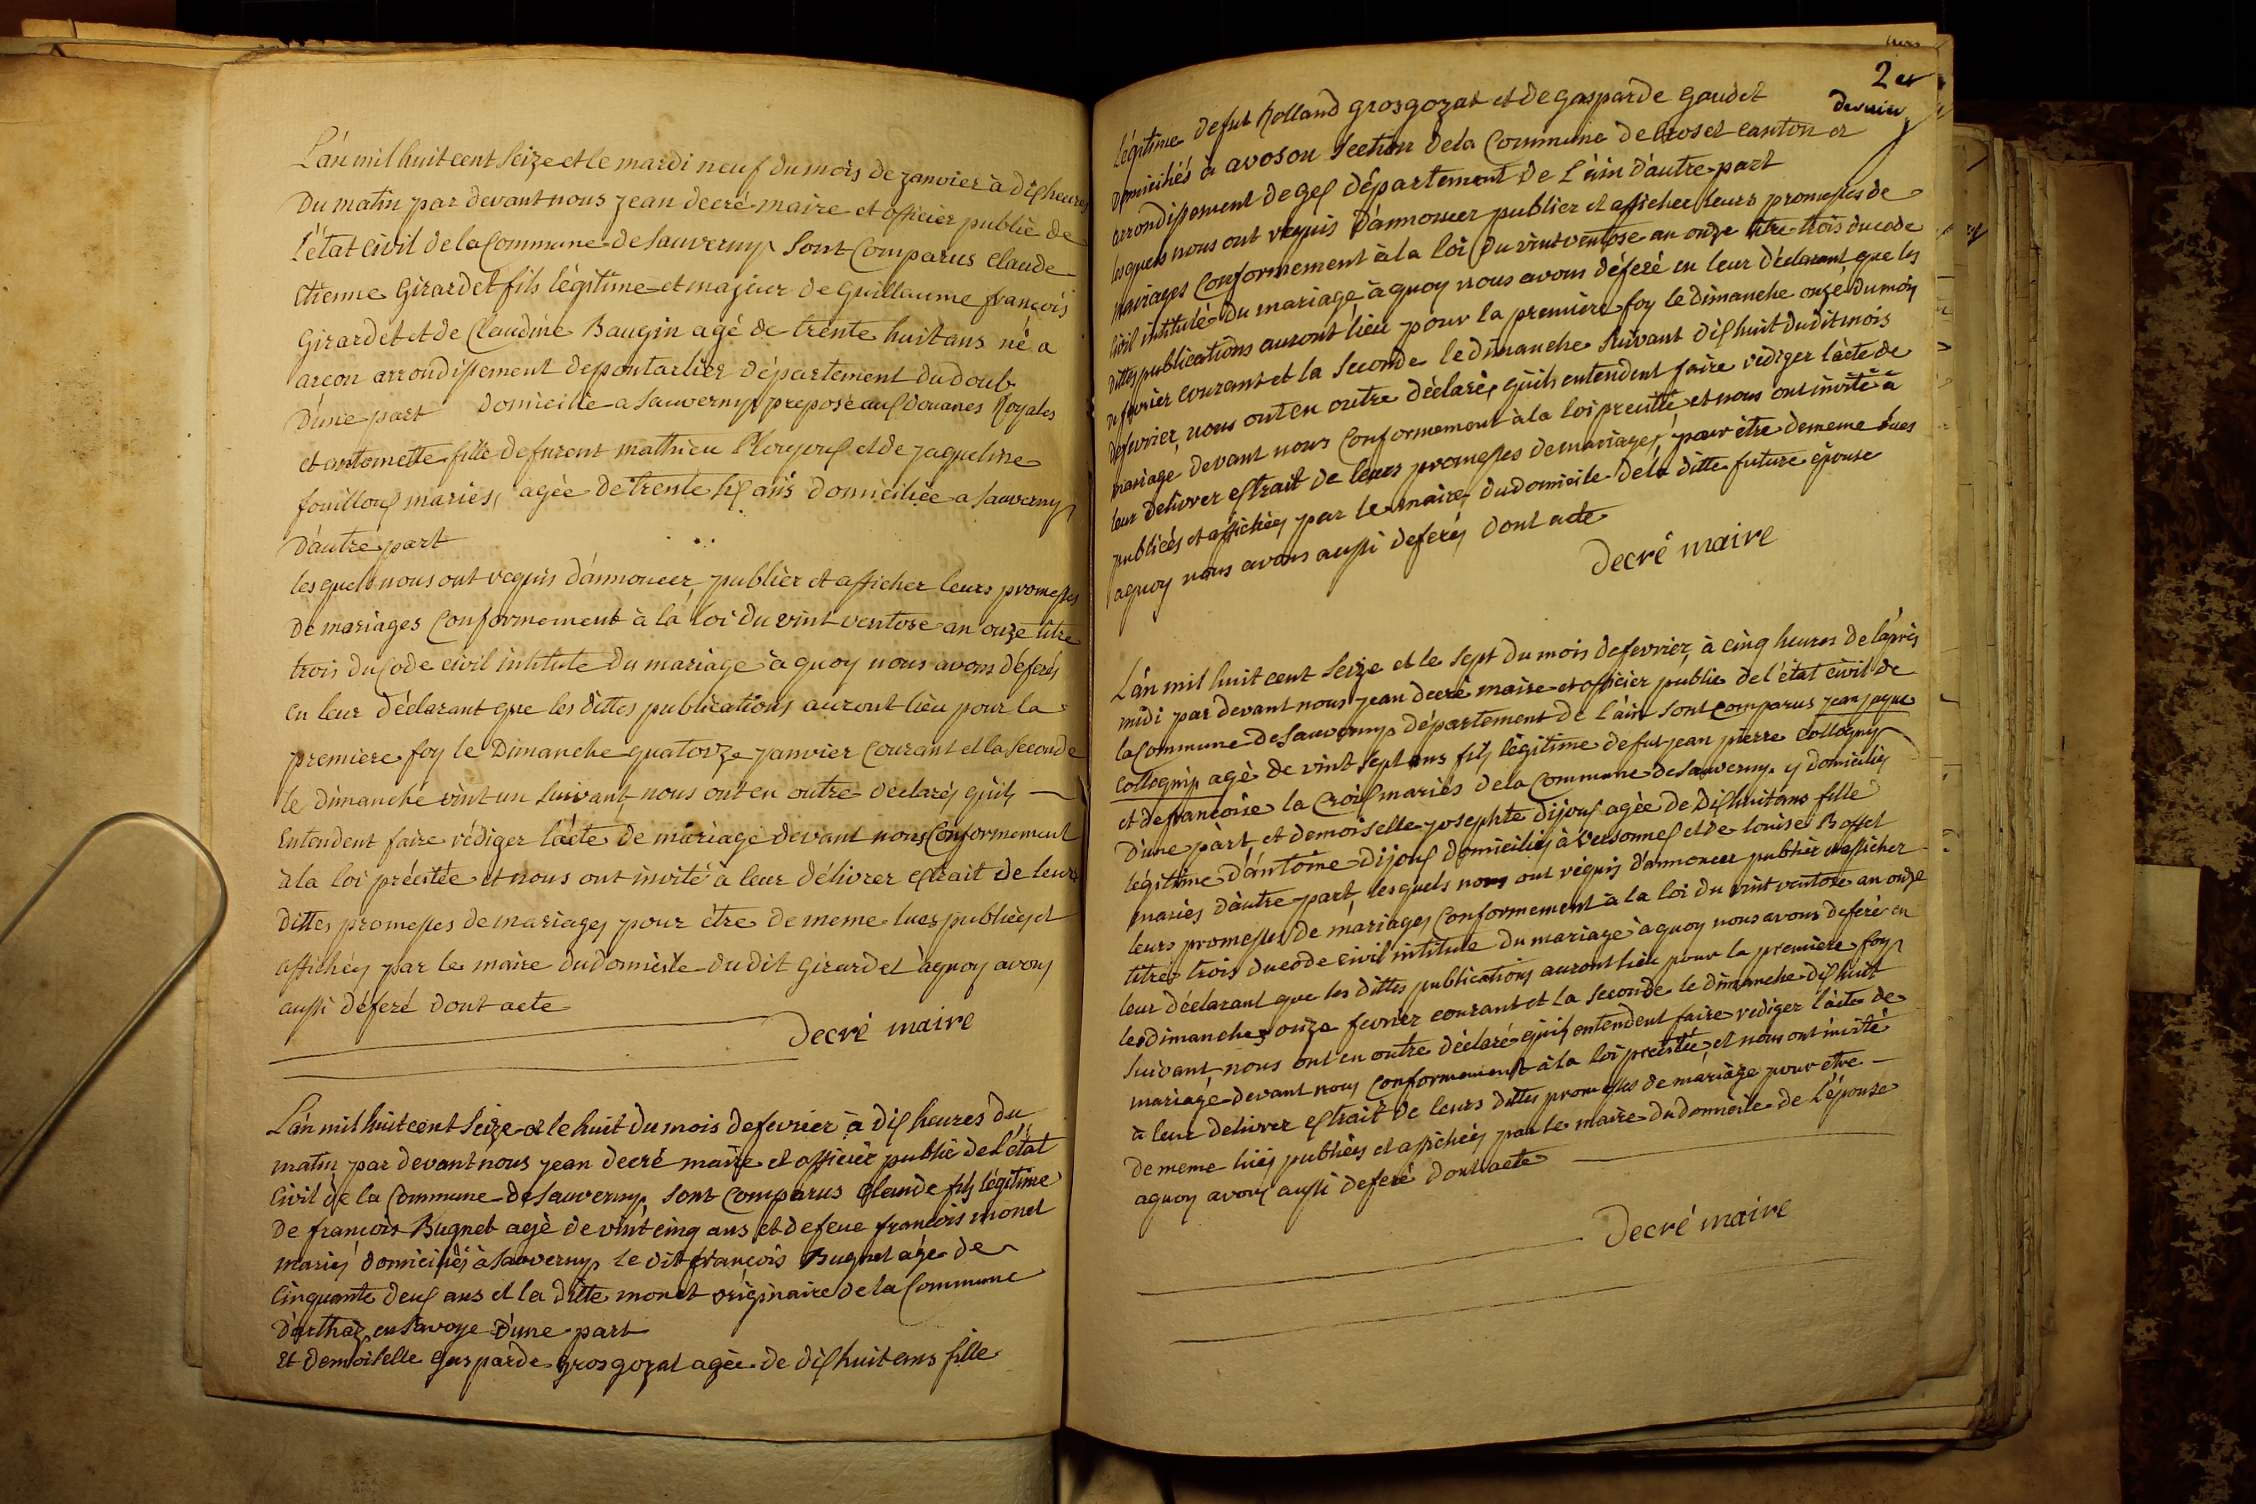 L'án mil huit cent Seize et le mardi neuf du mois de janvier à dix heures
Du matin par devant nous jean decré maire et officier public de
l'état civil de la Commune de Sauverny Sont Comparus Claude
etienne Girardet fils légitime et majeur de Guillaume françois
Girardet et de Claudine Baugin agé de trente huit ans né à
arcon arrondissement de pontarlier département du doub
D'une part domicilié a Sauverny preposé aux Douanes Royales
et antoinette fille defurent mathieu et de jaqueline
fouilloux mariés, agée de trente six ans domiciliée a Sauverny
D'autre part
lesquels nous ont requis d'annoncer, publier et afficher leurs promesses
de mariages Conformement à la loi du vint ventose an onze titre
trois du Code civil intitulé du mariage à quoy nous avons déferés
en leur déclarant que les dittes publications auront lieu pour la
premiere foy le Dimanche quatorze janvier Courant et la seconde
le dimanche vint un suivant nous ont en outre declarés qu'ils
Entendent faire rédiger l'acte de mariage devant nous Conformement
à la loi précitée et nous ont invité à leur délivrer extrait de leurs
Dittes promesses de mariages pour être de meme lues publiées et
affichées par le maire du domicile du dit Girardet àquoy avons
aussi déferé dont acte
Decré maire
L'án mil huit cent Seize et le huit du mois de fevrier à dix heures du
matin par devant nous jean decré maire et officier public de l'état
Civil de la Commune de Sauverny Sont Comparus Claude fils légitime
De françois Bugnet agé de vint cinq ans et de feue francois monet
mariés domiciliés à Sauverny le dit françois Bugnet agé de
Cinquante deux ans et la ditte monet originaire de la Commune
D'arthaz en Savoye D'une part
Et demoiselle Gasparde grosgozat agée de dix huit ans fille
2 et
dernier
légitime defut Rolland grosgozat et de gasparde gaudet
domiciliés à avoson Section de la Commune de Crozet canton et
arrondissement de gex département de l'ain d'autre part
lesquels nous ont requis d'annoncer publier et afficher leurs promesses de
mariages Conformement à la loi du vint ventose an onze titre trois du code
Civil intitulé du mariage à quoy nous avons déferé en leur déclarant que les
Dittes publications auront lieu pour la premiere foy le dimanche onze du mois
de fevrier courant et la Seconde le dimanche Suivant dix huit dudit mois
defevrier, nous ont en outre déclarés qu'ils entendent faire rediger l'acte de
mariage devant nous Conformement à la loi precitée, et nous ont invité à
leur delivrer extrait de leurs promesses de mariages pour être de meme lues
publiées et affichées par le maire du domicile de la ditte future épouse
aquoy nous avons aussi deferés dont acte
Decré maire
L'án mil huit cent Seize et le Sept du mois de fevrier, à cinq heures de l'après
midi par devant nous jean decré maire et officier public de l'état civil de
la Commune de Sauverny département de l'ain Sont Comparus jean jaque
Collogny agé de vint Sept ans fils légitime defut jean pierre Collogny
et de francoise la Croix mariés de la Commune de Sauverny y domiciliés
D'une part, et demoiselle josephte dijoux agée de Dix huit ans fille
légitime d'antoine Dijoux domiciliés à Versonnex et de louise Boffet
mariés d'autre part, lesquels nous ont requis d'annoncer publier et afficher
leurs promesses de mariages Conformement à la loi du vint ventose an onze
titre trois du code civil intitule du mariage à quoy nous avons deferé en
leur déclarant que les dittes publications auront lieu pour la premiere foy
le dimanche onze fevrier courant et la Seconde le dimanche dix huit
Suivant, nous ont en outre déclaré qu'ils entendent faire rediger l'acte de
mariage devant nous Conformement à la loi precitée, et nous ont invité
à leur delivrer extrait de leurs dittes promesses de mariage pour etre
de meme publiées et affichées par le maire du domicile de l'épouse
aquoy avons aussi deferé dont acte
Decré maire